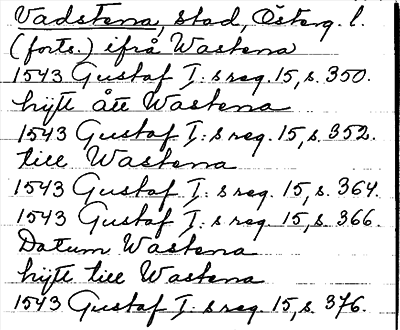 Vadstena, stad, Österg. l.
(forts.) ifrå Wastena
1543 Gustaf I:s reg. 15, s. 350.
hijttått Wastena
1543 Gustaf I:s reg. 15, s. 352.
till Wastena
1543 Gustaf I:s reg. 15, s. 364.
1543 Gustaf I:s reg. 15, s. 366.
Datum Wastena
hijtt till Wastena
1543 Gustaf I:s reg. 15, s. 376.